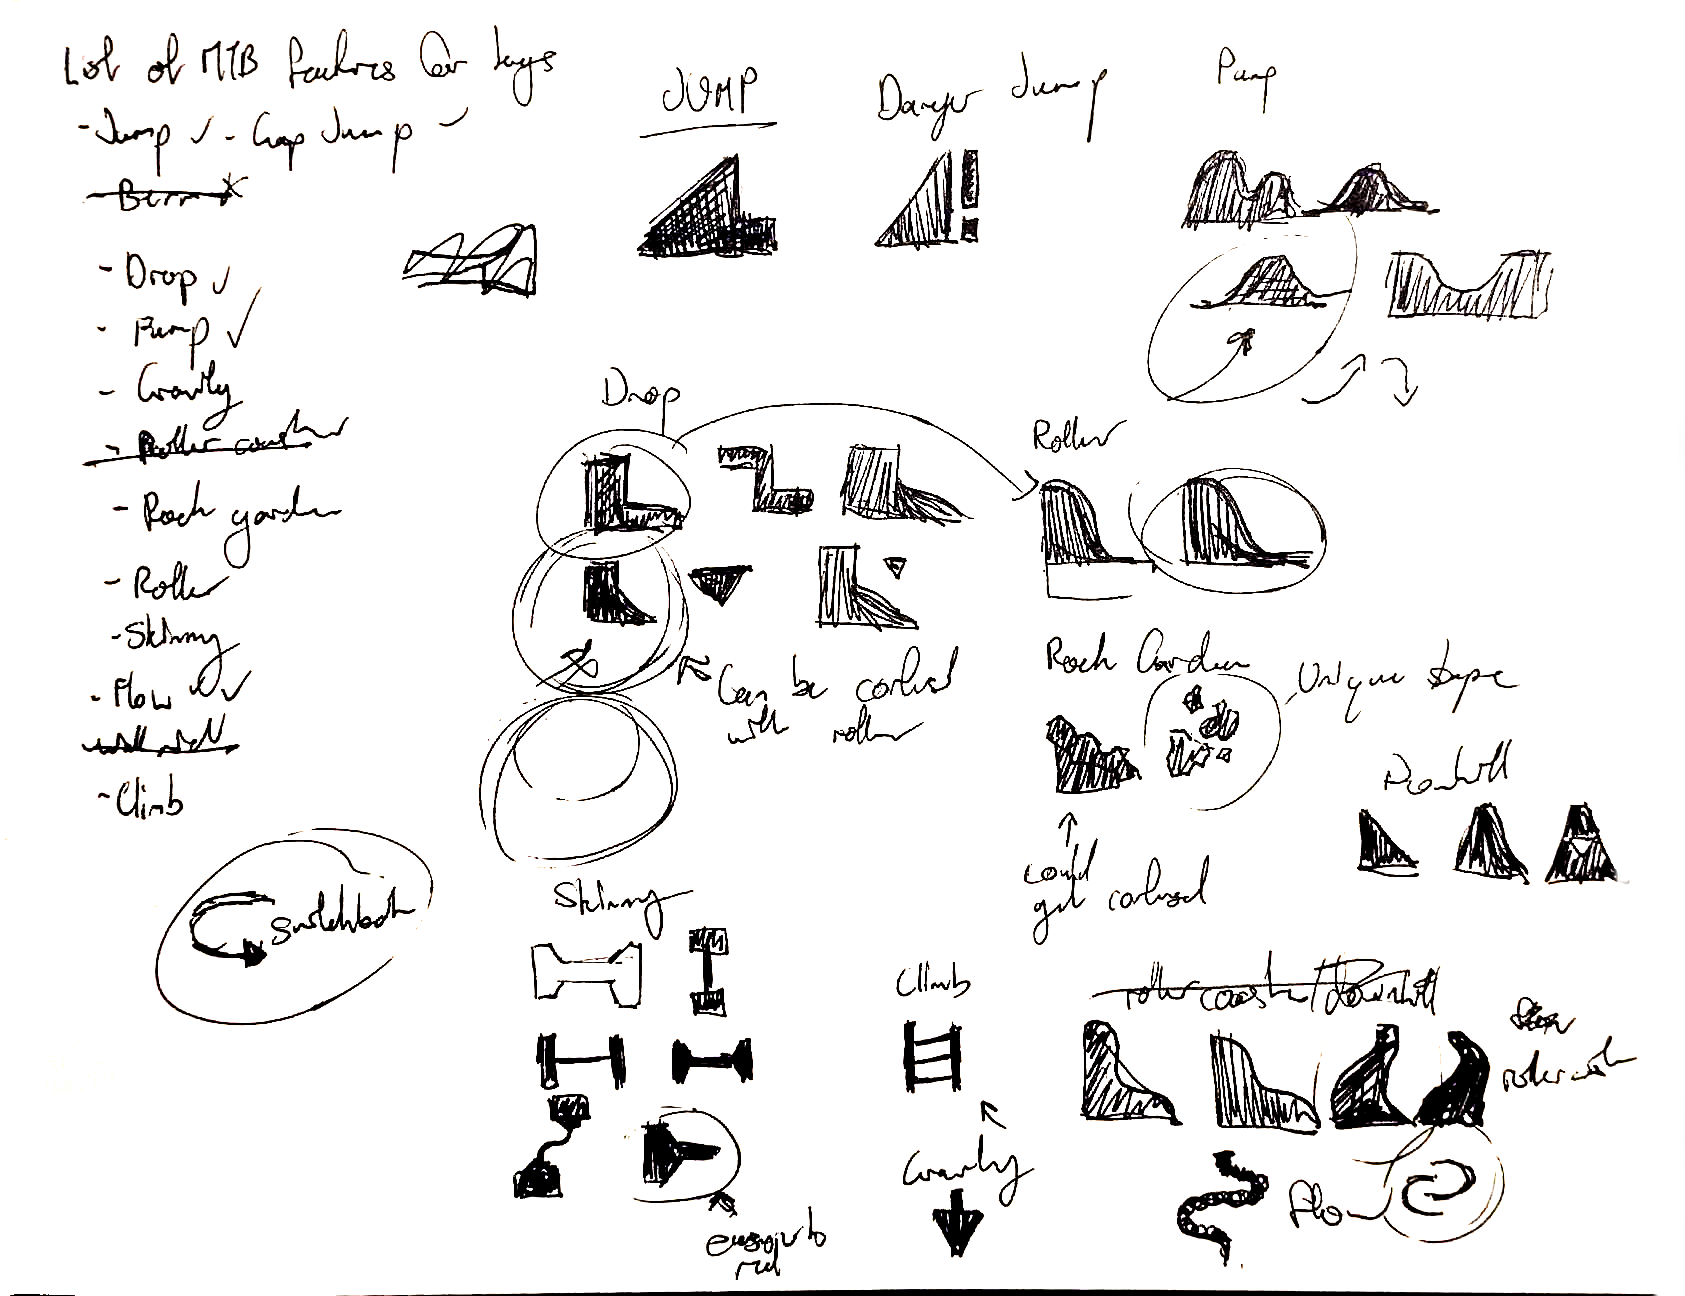 List of MTB features for tags
- Jump ✓ - Gap Jump ✓
- Berm x
- Drop ✓
- Pump ✓
- Gravity
- Roller coaster
- Rock garden
- Roller
- Skinny
- Flow ✓
- Climb
Switchback
JUMP
Danger Jump
Pump
Drop
Can be confused
with roller
Roller
Rock Garden
Unique shape
could
get confused
Downhill
Skinny
easier to
read
Climb
Gravity
roller coaster/downhill
Flow